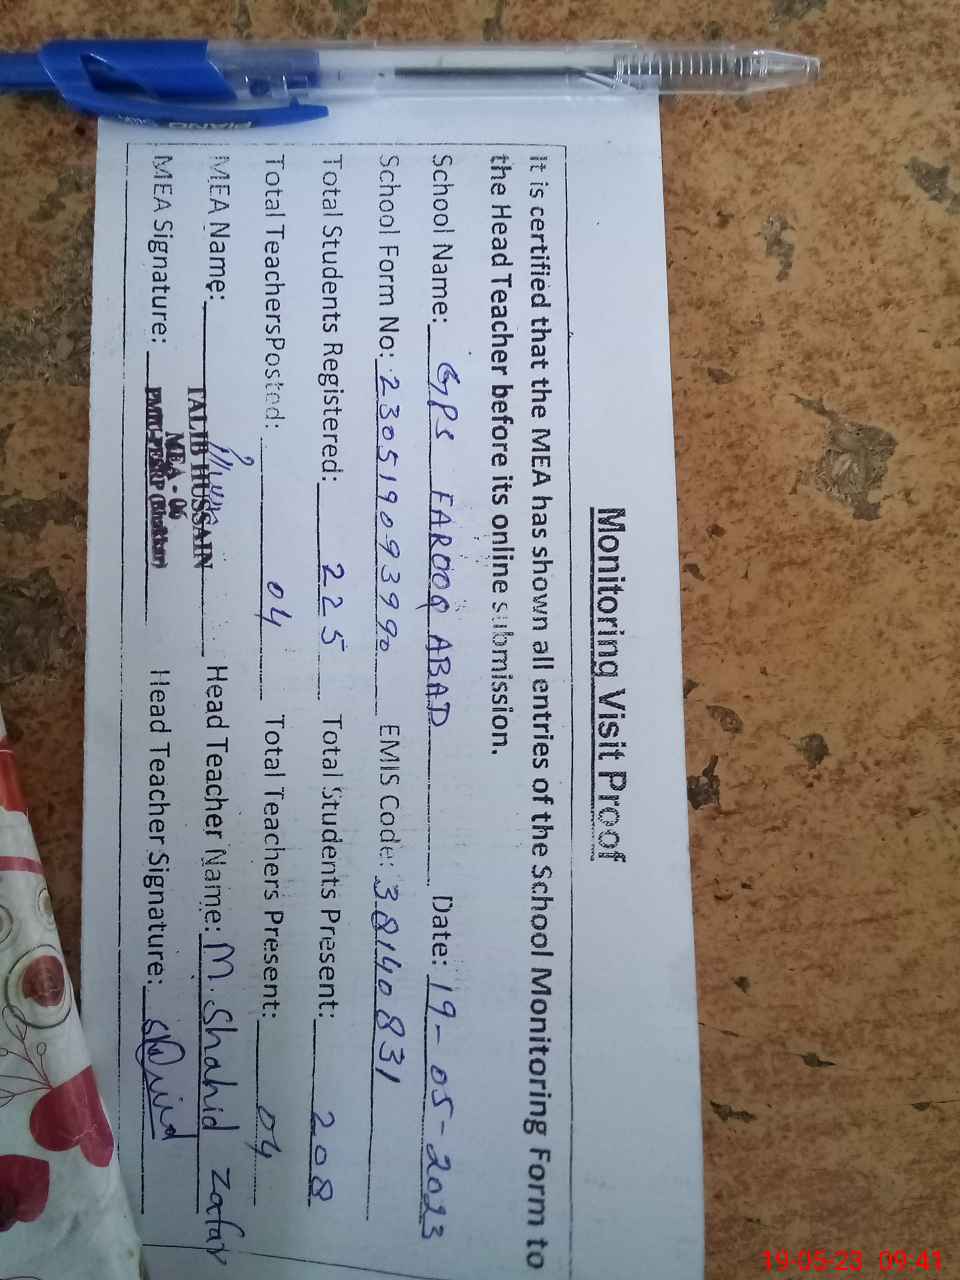 Monitoring Visit Proof
It is certified that the MEA has shown all entries of the School Monitoring Form to
the Head Teacher before its online submission.
School Name: GPS FAROOQ ABAD Date: 19-05-2023
School Form No: 230519093990 EMIS Code: 38140831
Total Students Registered: 225 Total Students Present: 208
Total TeachersPosted: 04 Total Teachers Present: 04
MEA Name: TALIB HUSSAIN Head Teacher Name: M. Shahid Zafar
MEA - 06
MEA Signature: Head Teacher Signature: Shahid
PIANO
19-05-23 09:41